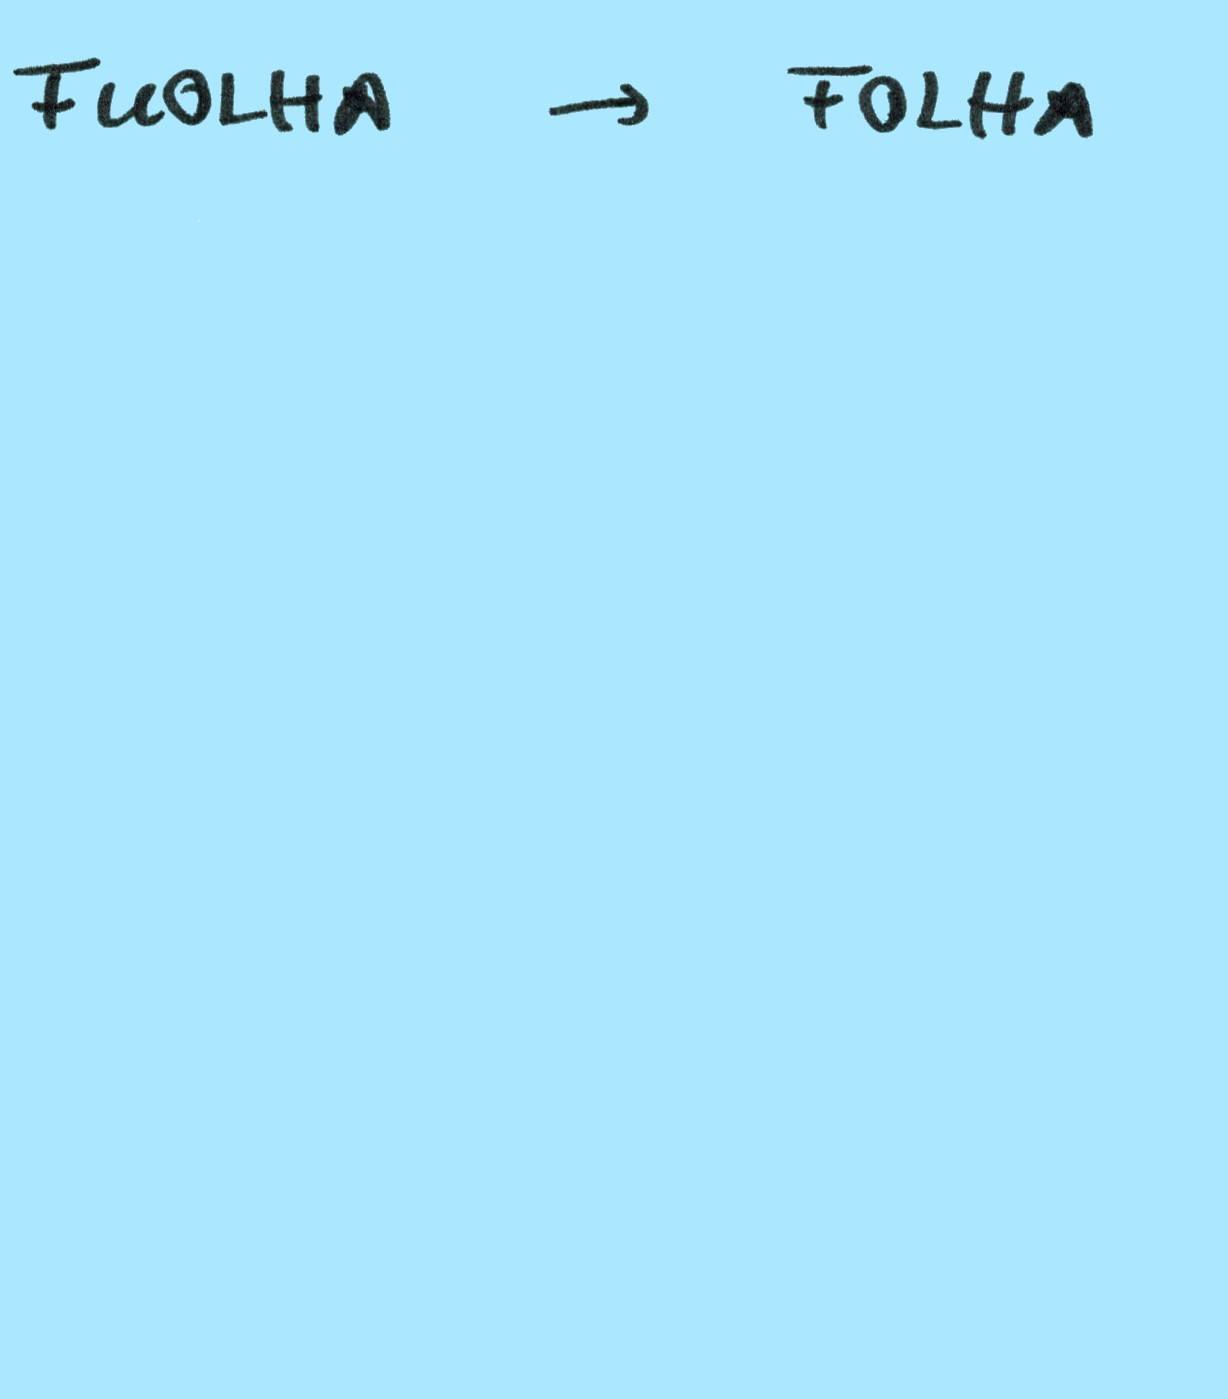 FUOLHA → FOLHA